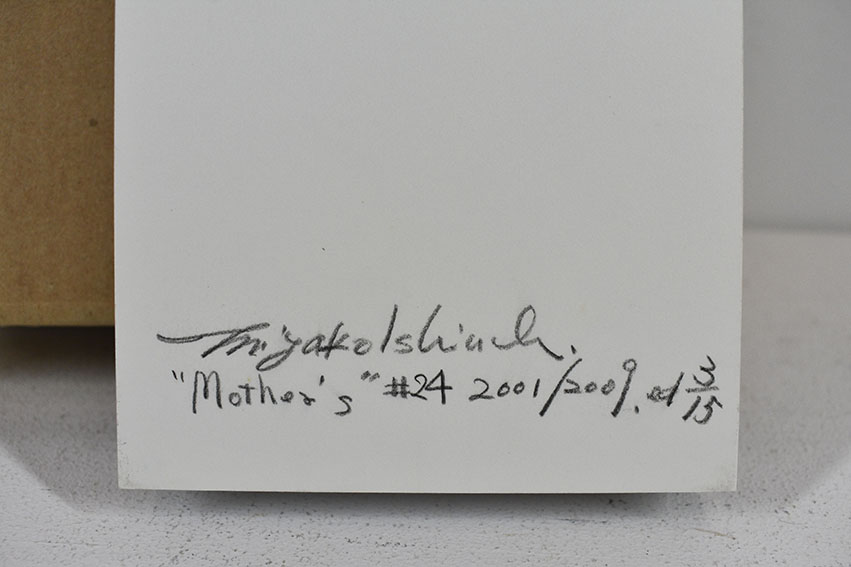 Miyako Ishiuchi.
"Mother's" #24 2001/2009. ed 3/15